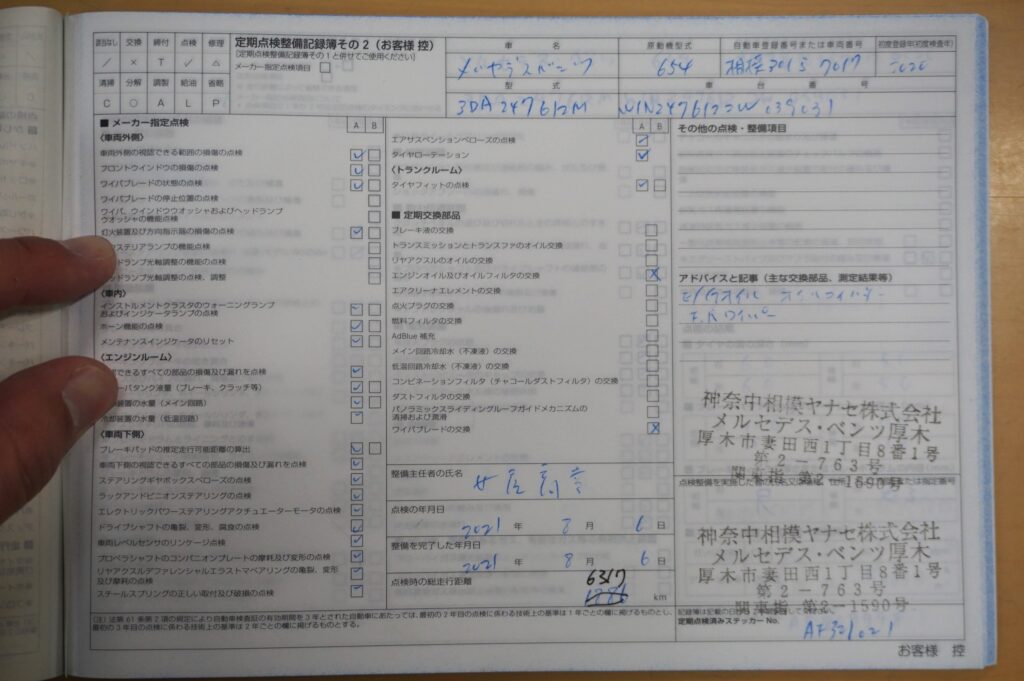 該当なし 交換 締付 点検 修理
／ × T ✓ △
清掃 分解 調製 給油 省略
C ○ A L P
定期点検整備記録簿その2（お客様 控）
[定期点検整備記録簿その1と併せてご使用ください]
メーカー指定点検項目
車 名
メルセデスベンツ
原動機型式
654
自動車登録番号または車両番号
相模 301 5 7017
初度登録年(初度検査年)
2020
型 式
3DA 247612M
車 台 番 号
■ メーカー指定点検
A B
〈車両外側〉
車両外側の視認できる範囲の損傷の点検
フロントウインドウの損傷の点検
ワイパブレードの状態の点検
ワイパブレードの停止位置の点検
ワイパ、ウインドウウオッシャおよびヘッドランプ
ウオッシャの機能点検
灯火装置及び方向指示器の損傷の点検
ステリアランプの機能点検
ドランプ光軸調整の機能の点検
ドランプ光軸調整の点検、調整
〈車内〉
インストルメントクラスタのウォーニングランプ
およびインジケータランプの点検
ホーン機能の点検
メンテナンスインジケータのリセット
〈エンジンルーム〉
できるすべての部品の損傷及び漏れを点検
ーバタンク液量（ブレーキ、クラッチ等）
装置の水量（メイン回路）
冷却装置の水量（低温回路）
〈車両下側〉
ブレーキパッドの推定走行可能距離の算出
車両下側の視認できるすべての部品の損傷及び漏れを点検
ステアリングギヤボックスベローズの点検
ラックアンドピニオンステアリングの点検
エレクトリックパワーステアリングアクチュエーターモータの点検
ドライブシャフトの亀裂、変形、腐食の点検
車両レベルセンサのリンケージ点検
プロペラシャフトのコンパニオンプレートの摩耗及び変形の点検
リヤアクスルデファレンシャルエラストマベアリングの亀裂、変形
及び摩耗の点検
スチールスプリングの正しい取付及び破損の点検
A B
エアサスペンションベローズの点検
タイヤローテーション
〈トランクルーム〉
タイヤフィットの点検
■ 定期交換部品
ブレーキ液の交換
トランスミッションとトランスファのオイル交換
リヤアクスルのオイルの交換
エンジンオイル及びオイルフィルタの交換
エアクリーナエレメントの交換
点火プラグの交換
燃料フィルタの交換
AdBlue 補充
メイン回路冷却水（不凍液）の交換
低温回路冷却水（不凍液）の交換
コンビネーションフィルタ（チャコールダストフィルタ）の交換
ダストフィルタの交換
パノラミックスライディングルーフガイドメカニズムの
清掃および潤滑
ワイパブレードの交換
整備主任者の氏名
点検の年月日
2021 年 8 月 6 日
整備を完了した年月日
2021 年 8 月 6 日
点検時の総走行距離
6317
km
その他の点検・整備項目
アドバイスと記事（主な交換部品、測定結果等）
E/Gオイル オイルフィルター
F.R ワイパー
神奈中相模ヤナセ株式会社
メルセデス・ベンツ厚木
厚木市妻田西1丁目8番1号
第2－763号
関東指 第2－1590号
神奈中相模ヤナセ株式会社
メルセデス・ベンツ厚木
厚木市妻田西1丁目8番1号
第2－763号
関東指 第2－1590号
定期点検済みステッカー No.
(注) 法第 61 条第 2 項の規定により自動車検査証の有効期間を 3 年とされた自動車にあたっては、最初の 2 年目の点検に係わる技術上の基準は 1 年ごとの欄に掲げるものとし、
最初の 3 年目の点検に係わる技術上の基準は 2 年ごとの欄に掲げるものとする。
お客様 控